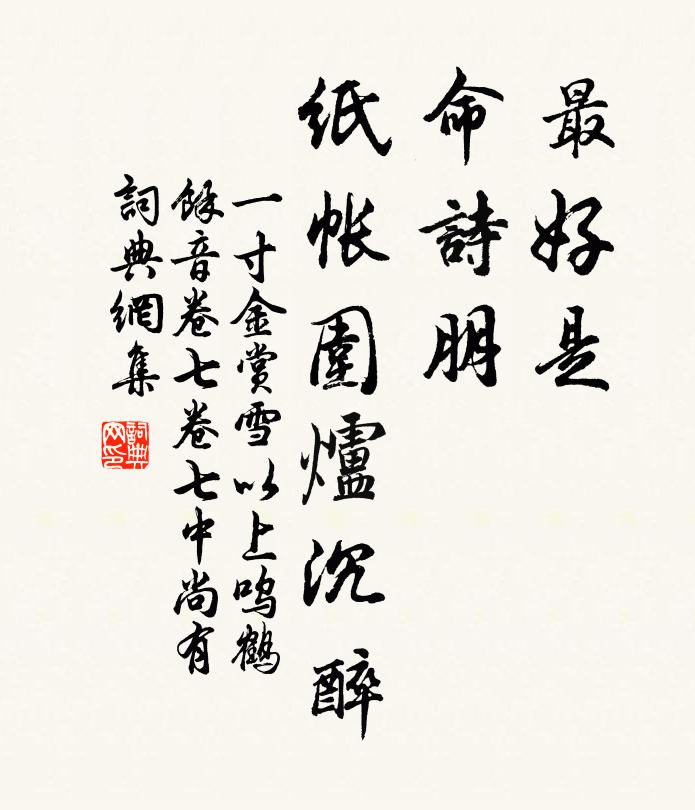 最好是
命詩朋
紙帳圍爐沉醉
一寸金賞雪以上鳴鶴
餘音卷七卷七中尚有
詞典網集
詞典網印